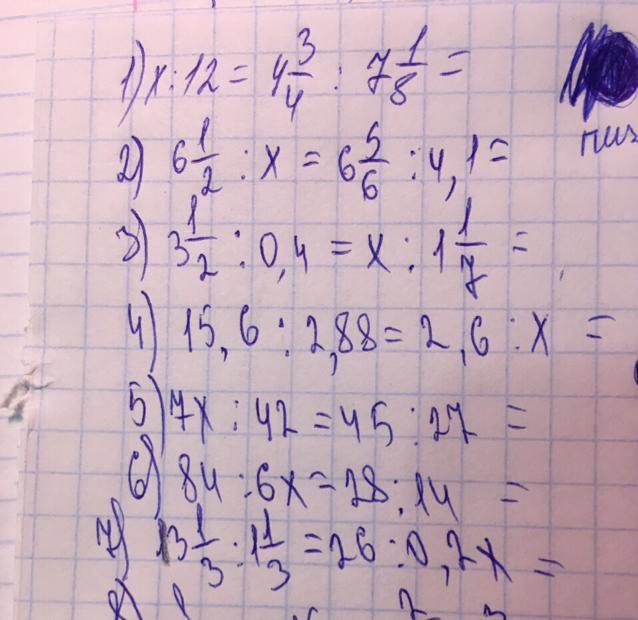 1) x : 12 = 4 3/4 : 7 1/8 =
2) 6 1/2 : x = 6 5/6 : 4,1 =
3) 3 1/2 : 0,4 = x : 1 1/7 =
4) 15,6 : 2,88 = 2,6 : x =
5) 7x : 42 = 45 : 27 =
6) 84 : 6x = 28 : 14 =
7) 13 1/3 : 1 1/3 = 26 : 0,2x =